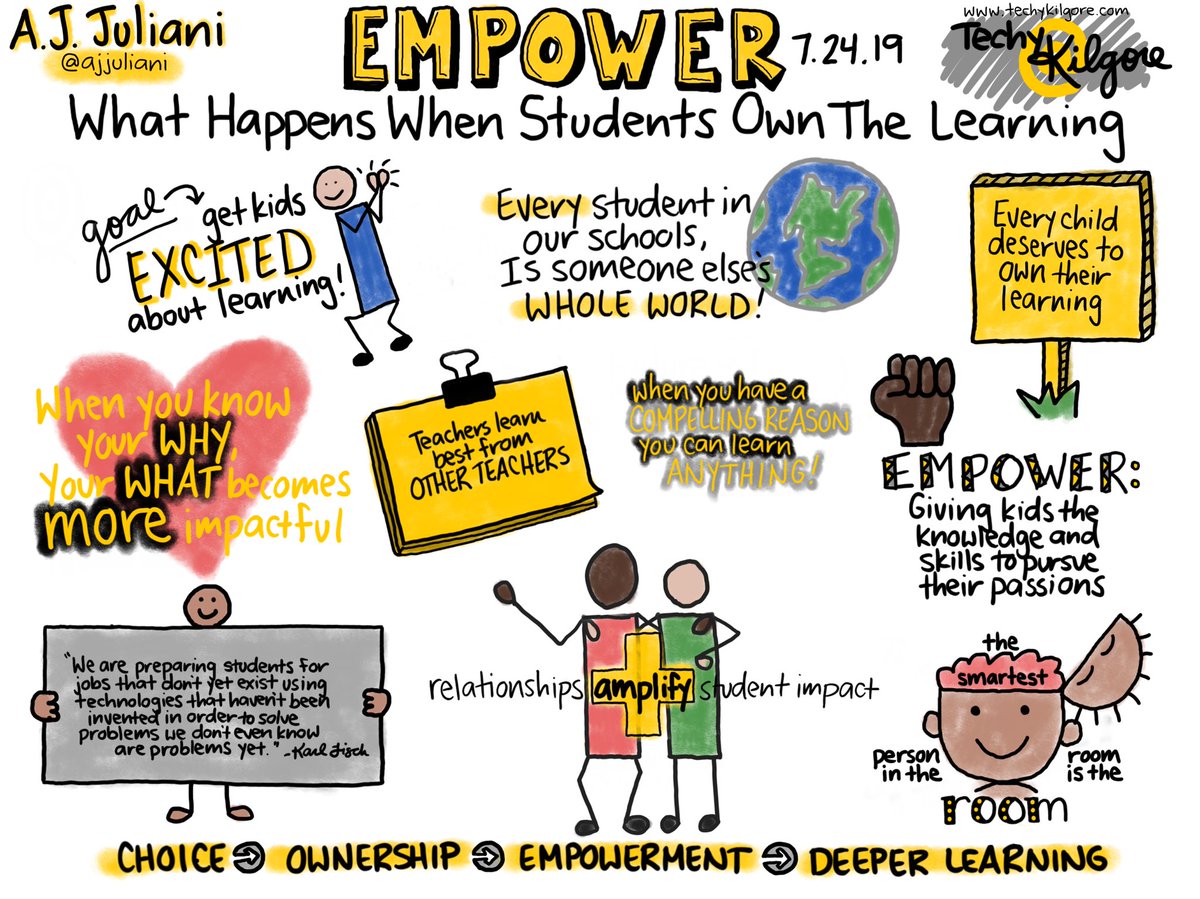 A.J. Juliani
@ajjuliani
EMPOWER
7.24.19
www.techykilgore.com
Techy
Kilgore
What Happens When Students Own The Learning
goal → get kids
EXCITED
about learning!
Every student in
our schools,
Is someone else's
WHOLE WORLD!
Every child
deserves to
own their
learning
When you know
your WHY,
Your WHAT becomes
more impactful
Teachers learn
best from
OTHER TEACHERS
when you have a
COMPELLING REASON
you can learn
ANYTHING!
EMPOWER:
Giving kids the
knowledge and
skills to pursue
their passions
"We are preparing students for
jobs that don't yet exist using
technologies that haven't been
invented in order to solve
problems we don't even know
are problems yet." -Karl Fisch
relationships amplify student impact
the
smartest
person
in the
room
is the
room
CHOICE → OWNERSHIP → EMPOWERMENT → DEEPER LEARNING